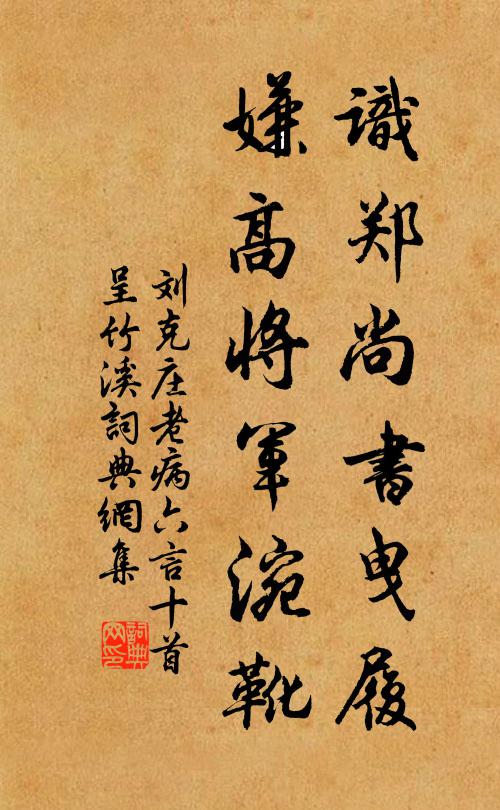 識郑尚書曳履
嫌高將军涴靴
刘克庄老病六言十首
呈竹溪詞典網集
詞典網印